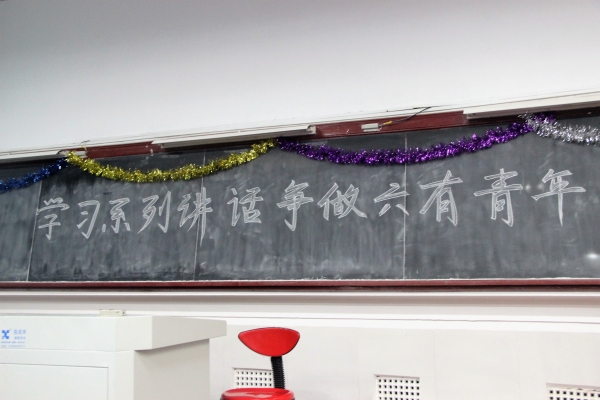 学习系列讲话争做六有青年